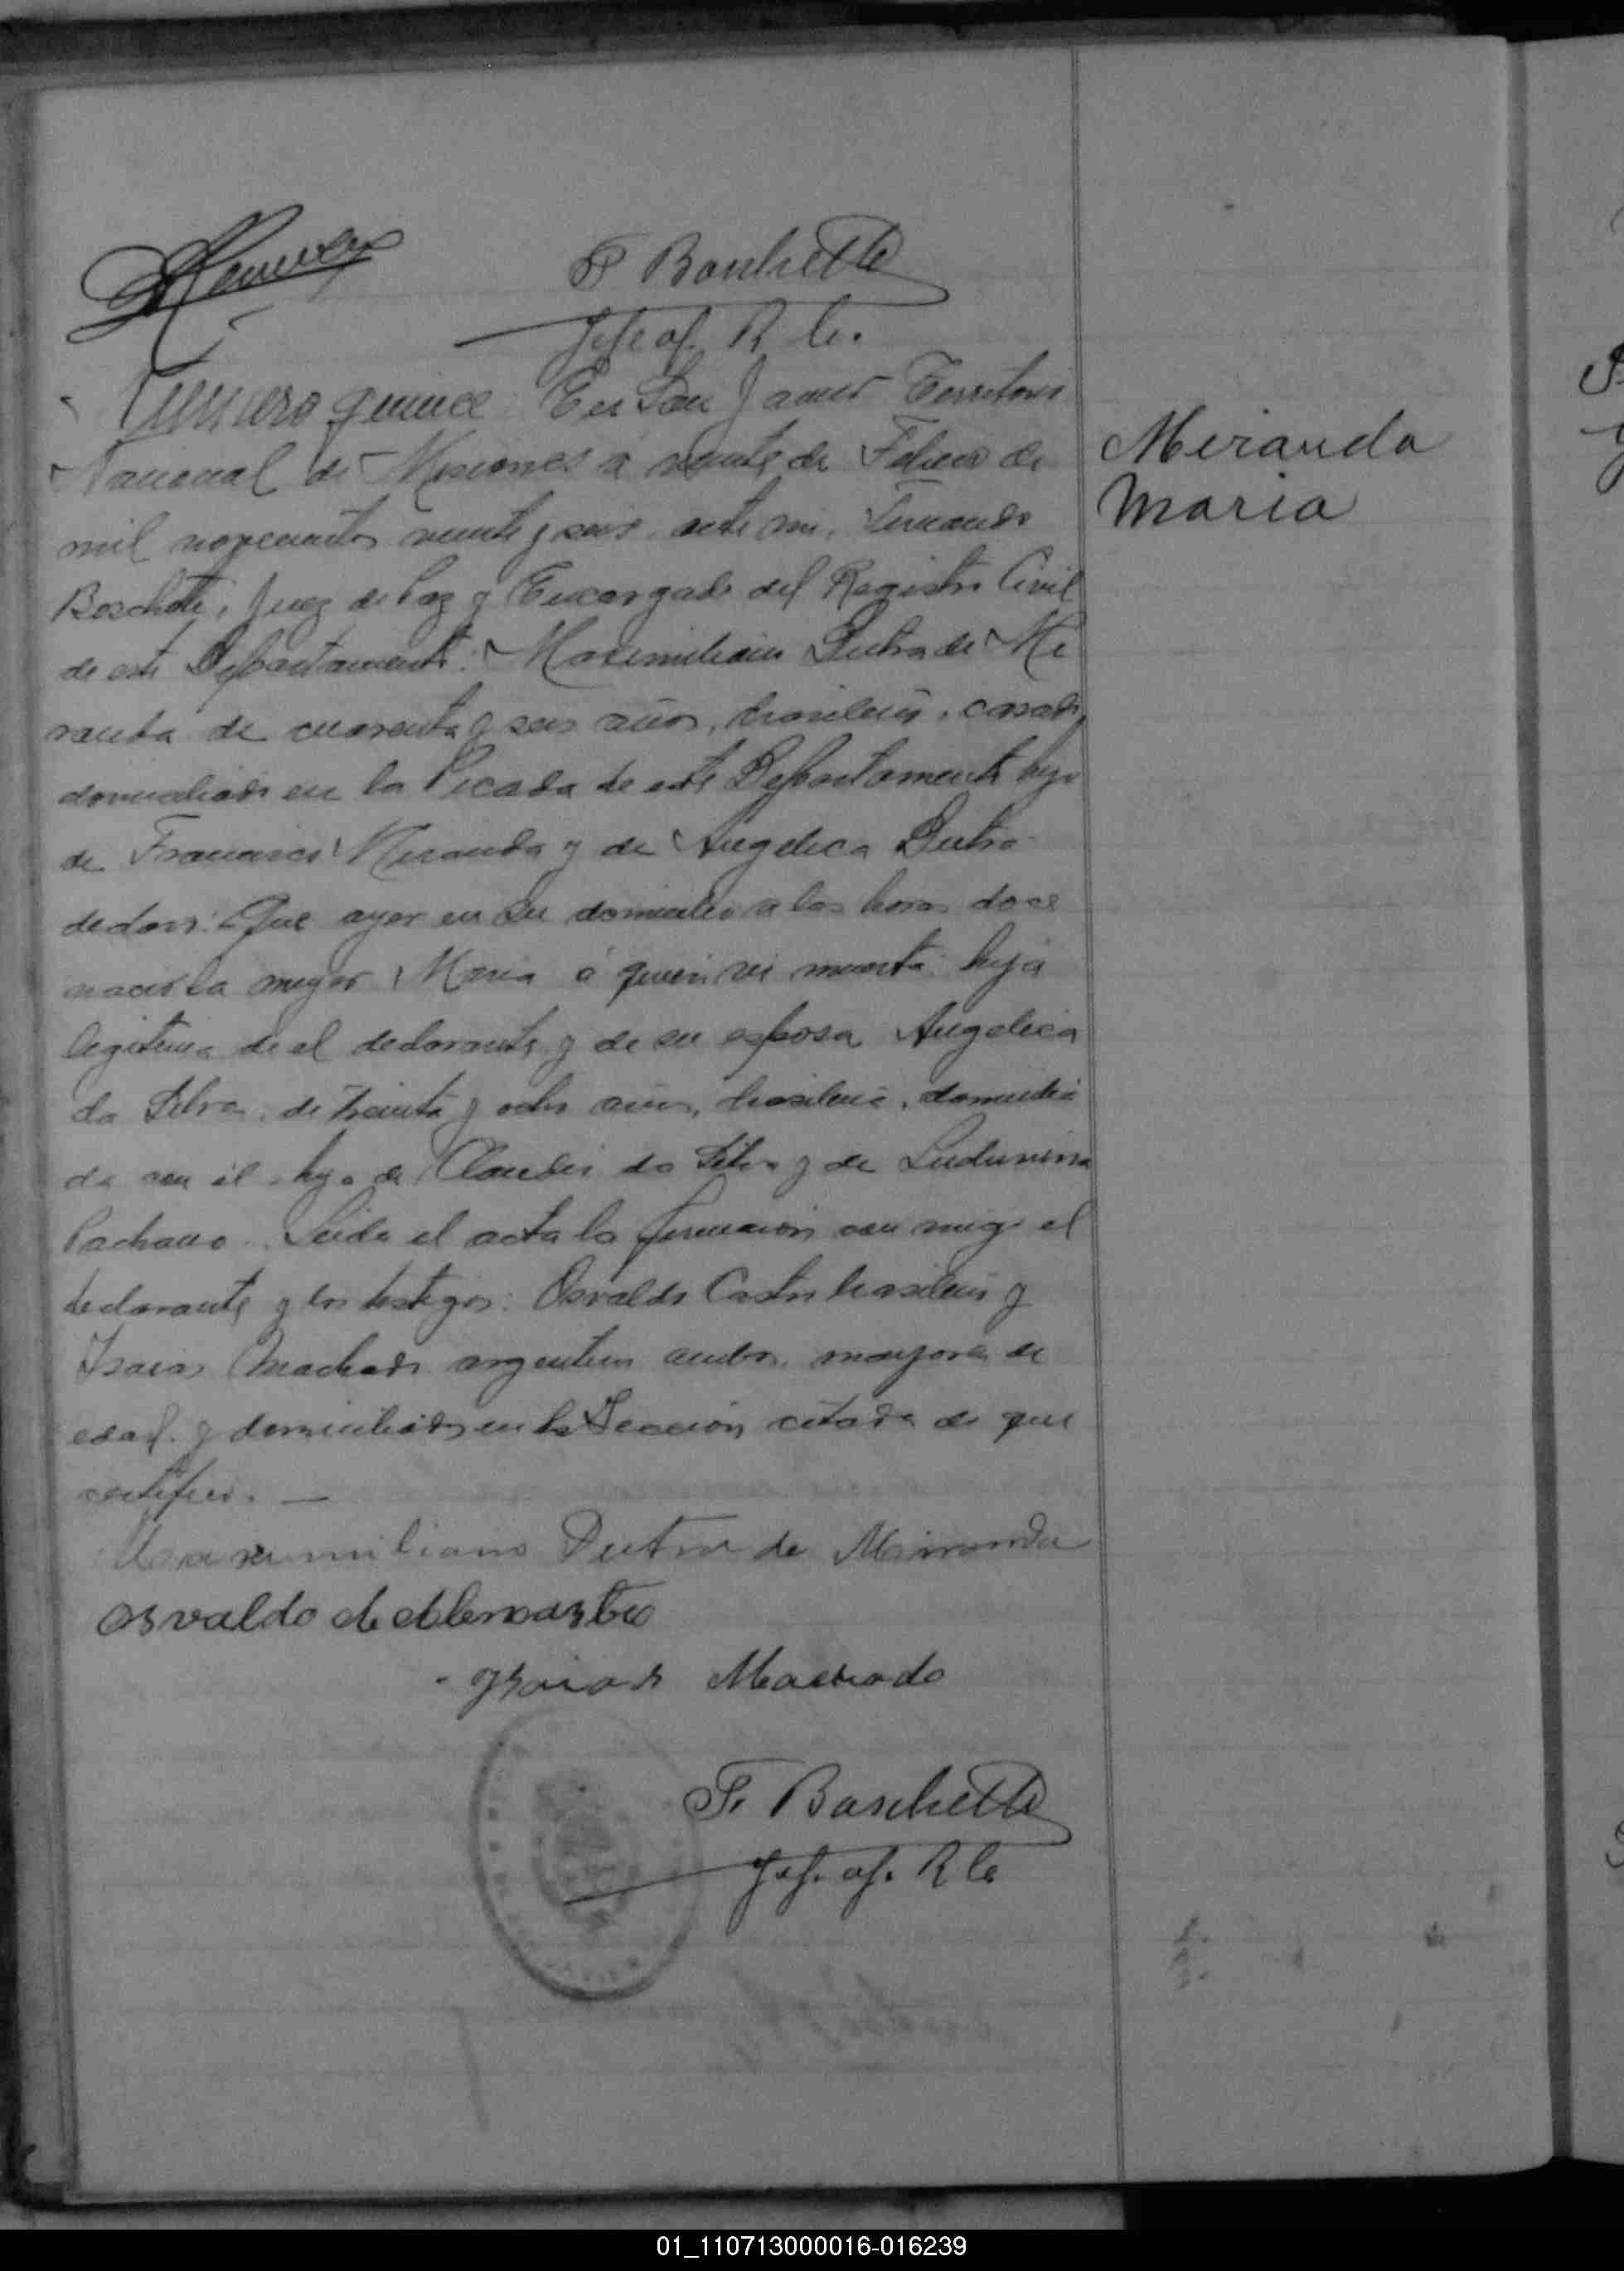 F Boschetti
Jefe of. R C.
Numero quince En San Javier Territorio
Nacional de Misiones a veinte de Febrero de
mil novecientos veinte y seis, ante mi, Fernando
Boschetti, Juez de Paz y Encargado del Registro Civil
de este Departamento: Maximiliano Dutra de Mi
randa de cuarenta y seis años, brasileño, casado,
domiciliado en la Picada de este Departamento hijo
de Francisco Miranda y de Angelica Dutra
declaró: Que ayer en su domicilio a las horas doce
nació la mujer Maria á quien vi muerta hija
legitima de el declarante y de su esposa Angelica
da Silva, de treinta y ocho años, brasileña, domicilia
da con él hija de Claudio da Silva y de Luduvina
Pachano. Leida el acta la firmaron con migo el
declarante y los testigos: Osvaldo Castro brasileño y
Isaias Machado argentino ambos mayores de
edad y domiciliados en la Sección citada de que
certifico. —
Maximiliano Dutra de Miranda
Osvaldo de
Isaias Machado
F. Boschetti
Jef. of. R C
Miranda
Maria
01_110713000016-016239